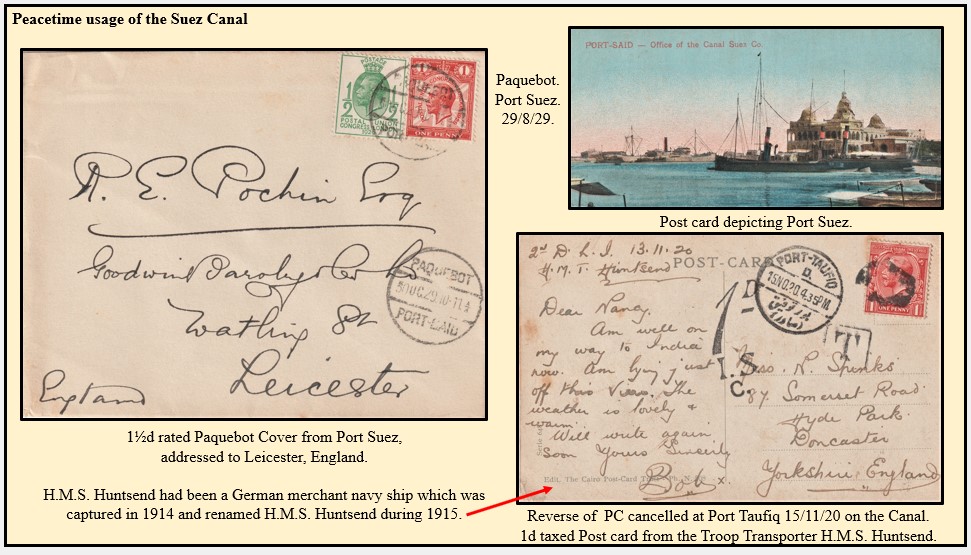 Peacetime usage of the Suez Canal
POSTAGE
1/2
POSTAL UNION
CONGRESS
1
ONE PENNY
R. E. Pochin Esq
Goodwin
Leicester
England
PAQUEBOT
PORT-SAID
1½d rated Paquebot Cover from Port Suez,
addressed to Leicester, England.
H.M.S. Huntsend had been a German merchant navy ship which was
captured in 1914 and renamed H.M.S. Huntsend during 1915.
Paquebot.
Port Suez.
29/8/29.
PORT-SAID — Office of the Canal Suez Co.
Post card depicting Port Suez.
2nd D. L. I. 13.11.20
H. M. T. Huntsend
POST-CARD
PORT-TAUFIQ
D.
15NO.20.4.35PM.
1
ONE PENNY
1D
T
I.S.
C.
Dear Nancy.
Am well on
my way to India
now. Am lying just
off this View. The
weather is lovely &
warm.
Will write again
soon Yours Sincerely
Bob x.
Miss. N. Spinks
87 Somerset Road
Hyde Park.
Doncaster
Yorkshire, England
Edit. The Cairo Post-Card
Reverse of PC cancelled at Port Taufiq 15/11/20 on the Canal.
1d taxed Post card from the Troop Transporter H.M.S. Huntsend.